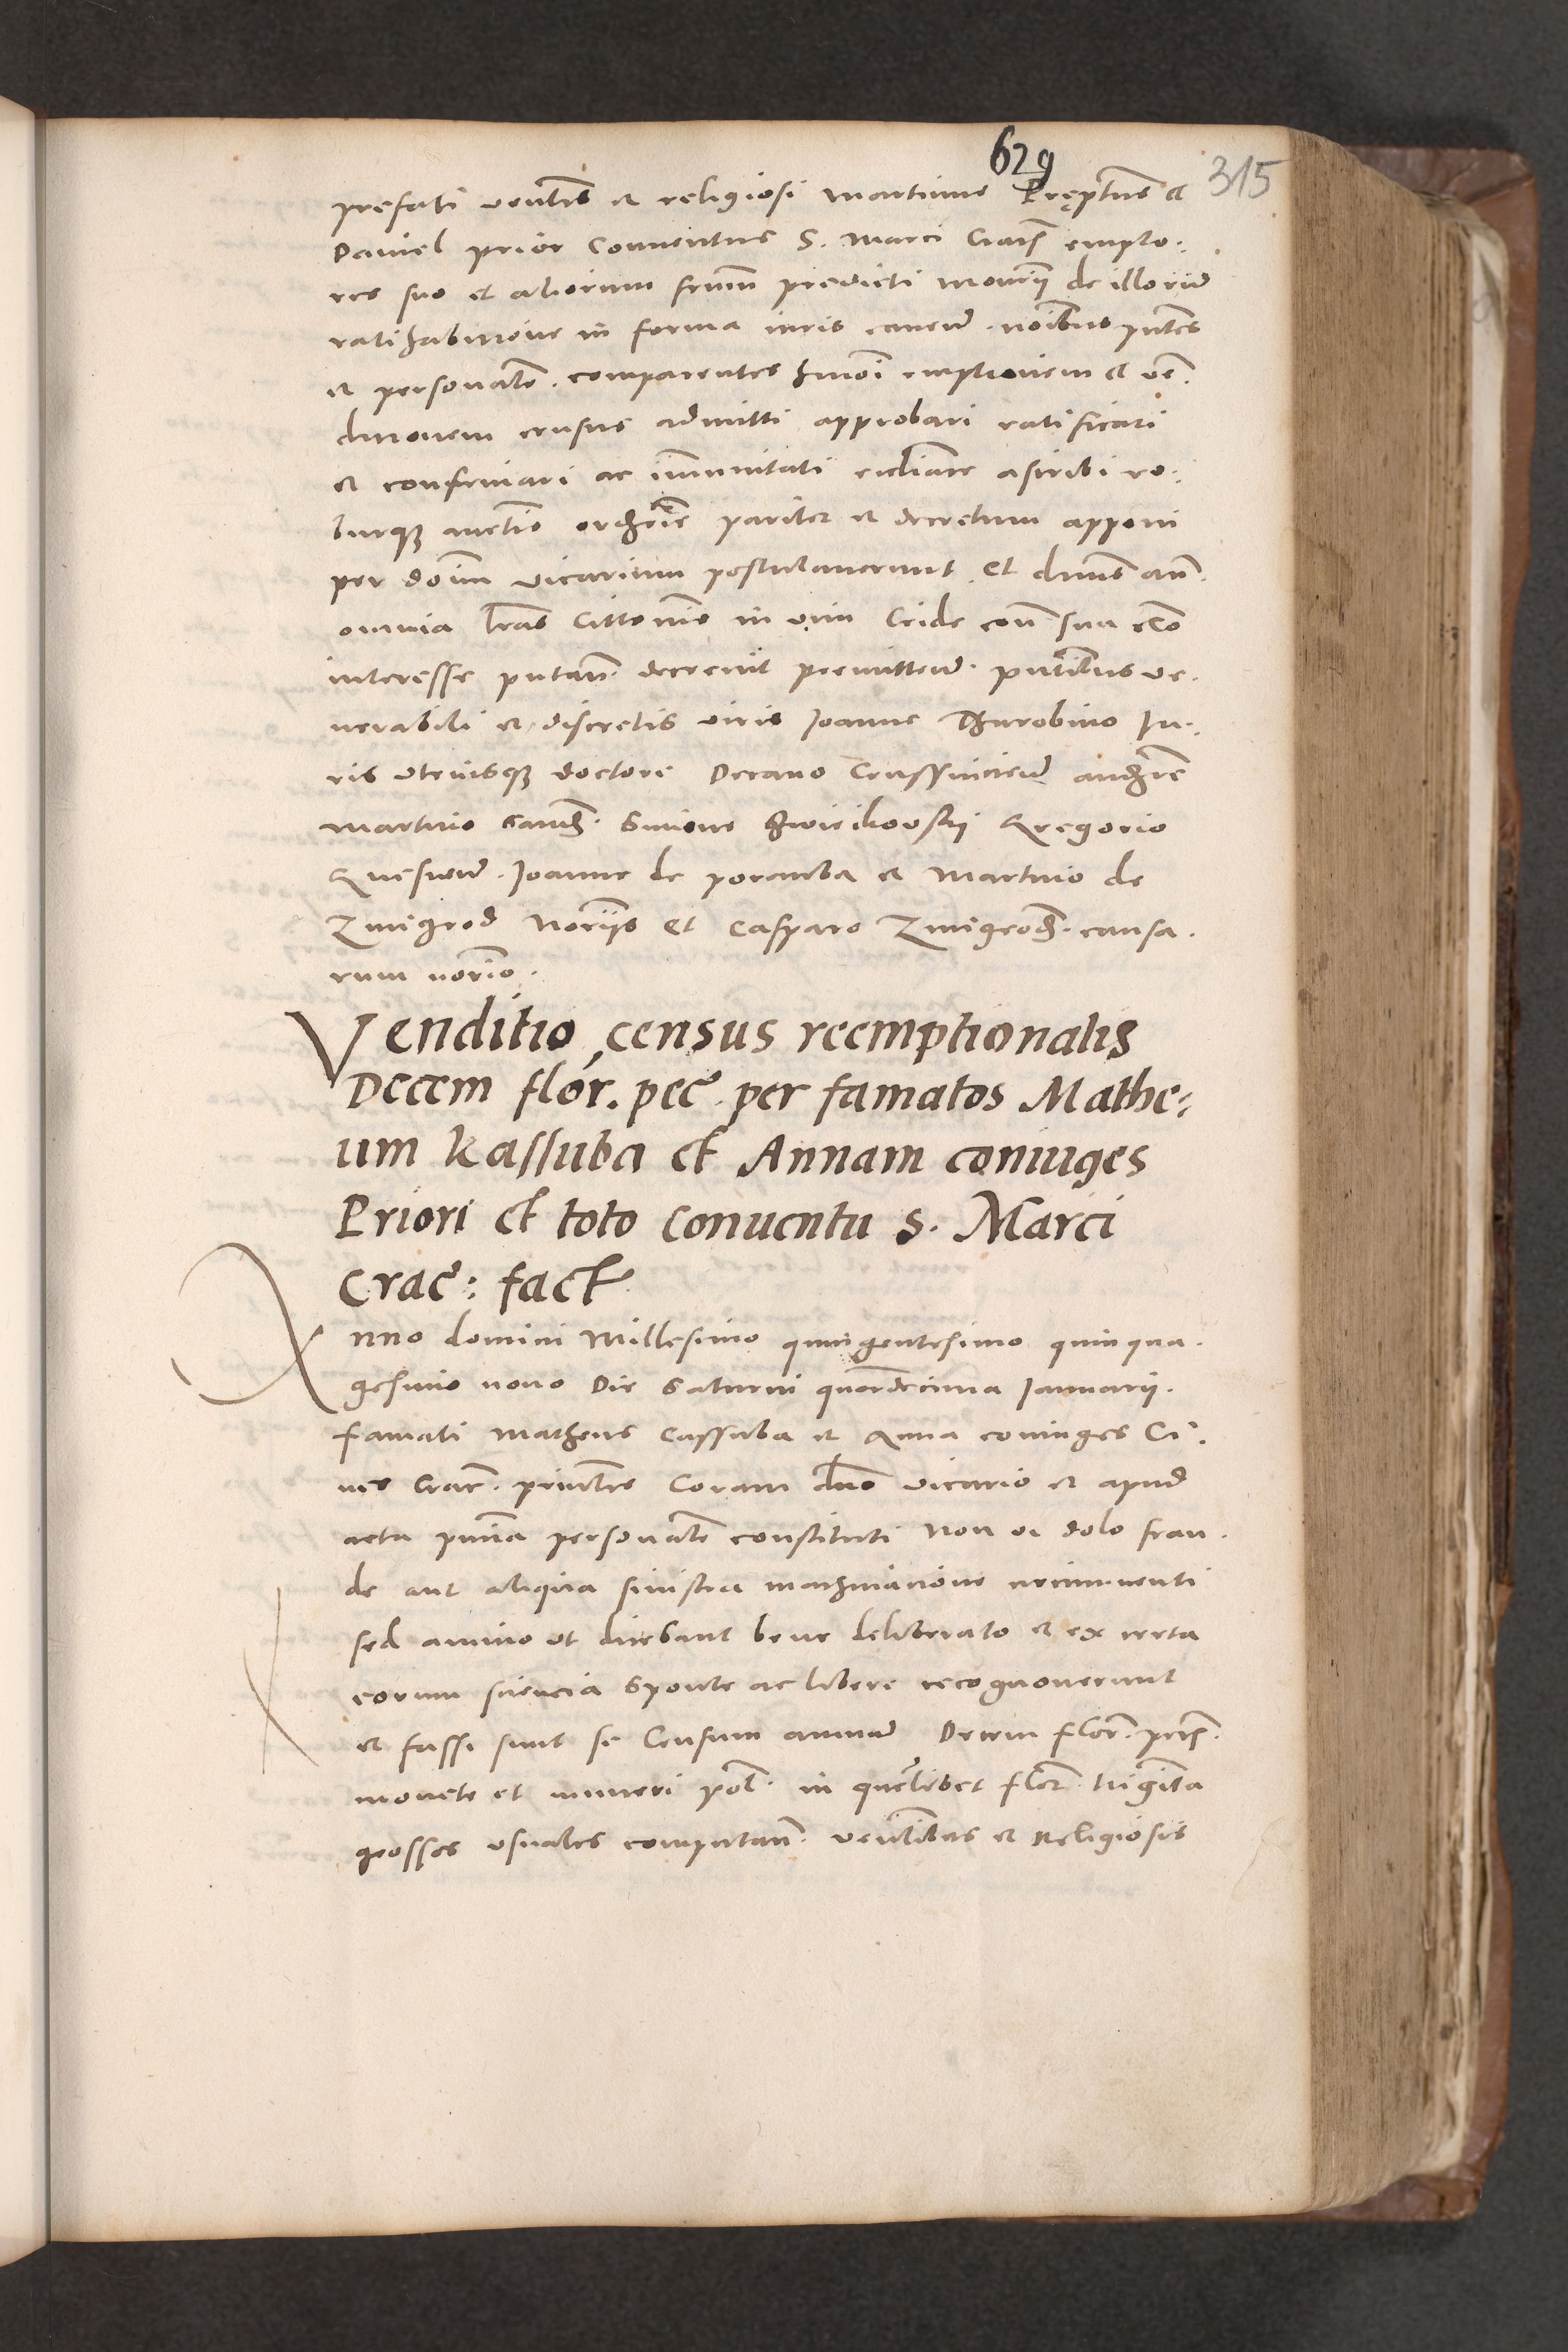 629
315
prefati venlis et religiosi Martinus Preptus et
Daniel prior Conventus S. Marci Crac empto.
res suo et aliorum frum predicti monrii de illorum
ratihabitione in forma iuris caven. noibus pntes
et personalr. comparentes hmoi emptionem et ven
ditionem census admitti approbari ratificari
et confirmari ac immunitati eccliastce ascribi ro.
burque auctis ordrie pariter et decretum apponi
per doim vicarium postulaverunt. Et dnus an.
omnia Lras Cittonis in vim Cride con sua
interesse putan. decrevit premitten. pntibus ve.
nerabili et discretis viris Joanne Thurobino Iu.
ris utriusque doctore Decano Crusvicien Andrea
Martino Simone Gregorio
Joanne de poramba et Martino de
Zmigrod Noriis et Casparo Zmigrod. causa.
rum norio.
Venditio census reemptionalis
Decem flor. pec. per famatos Mathe:
um Kassuba et Annam coniuges
Priori et toto conventu S. Marci
Crac: fact.
Anno domini Millesimo quingentesimo quinqua.
gesimo nono Die Saturni quardecima Januarii.
famati Matheus Cassuba et Anna coniuges Ci.
ves Crac. princtes Coram dno vicario et apud
acta pnia personalr constituti non vi dolo frau.
de aut aliqua sinistra machinatione circumventi
sed animo ut dicebant bene deliberato et ex certa
eorum sciencia sponte ac libere recognoverunt
et fassi sunt se Censum annuum Decem flor. pecis.
monete et numeri pol. in quelibet flor. triginta
grosses usuales computan. venlibus et Religiosis